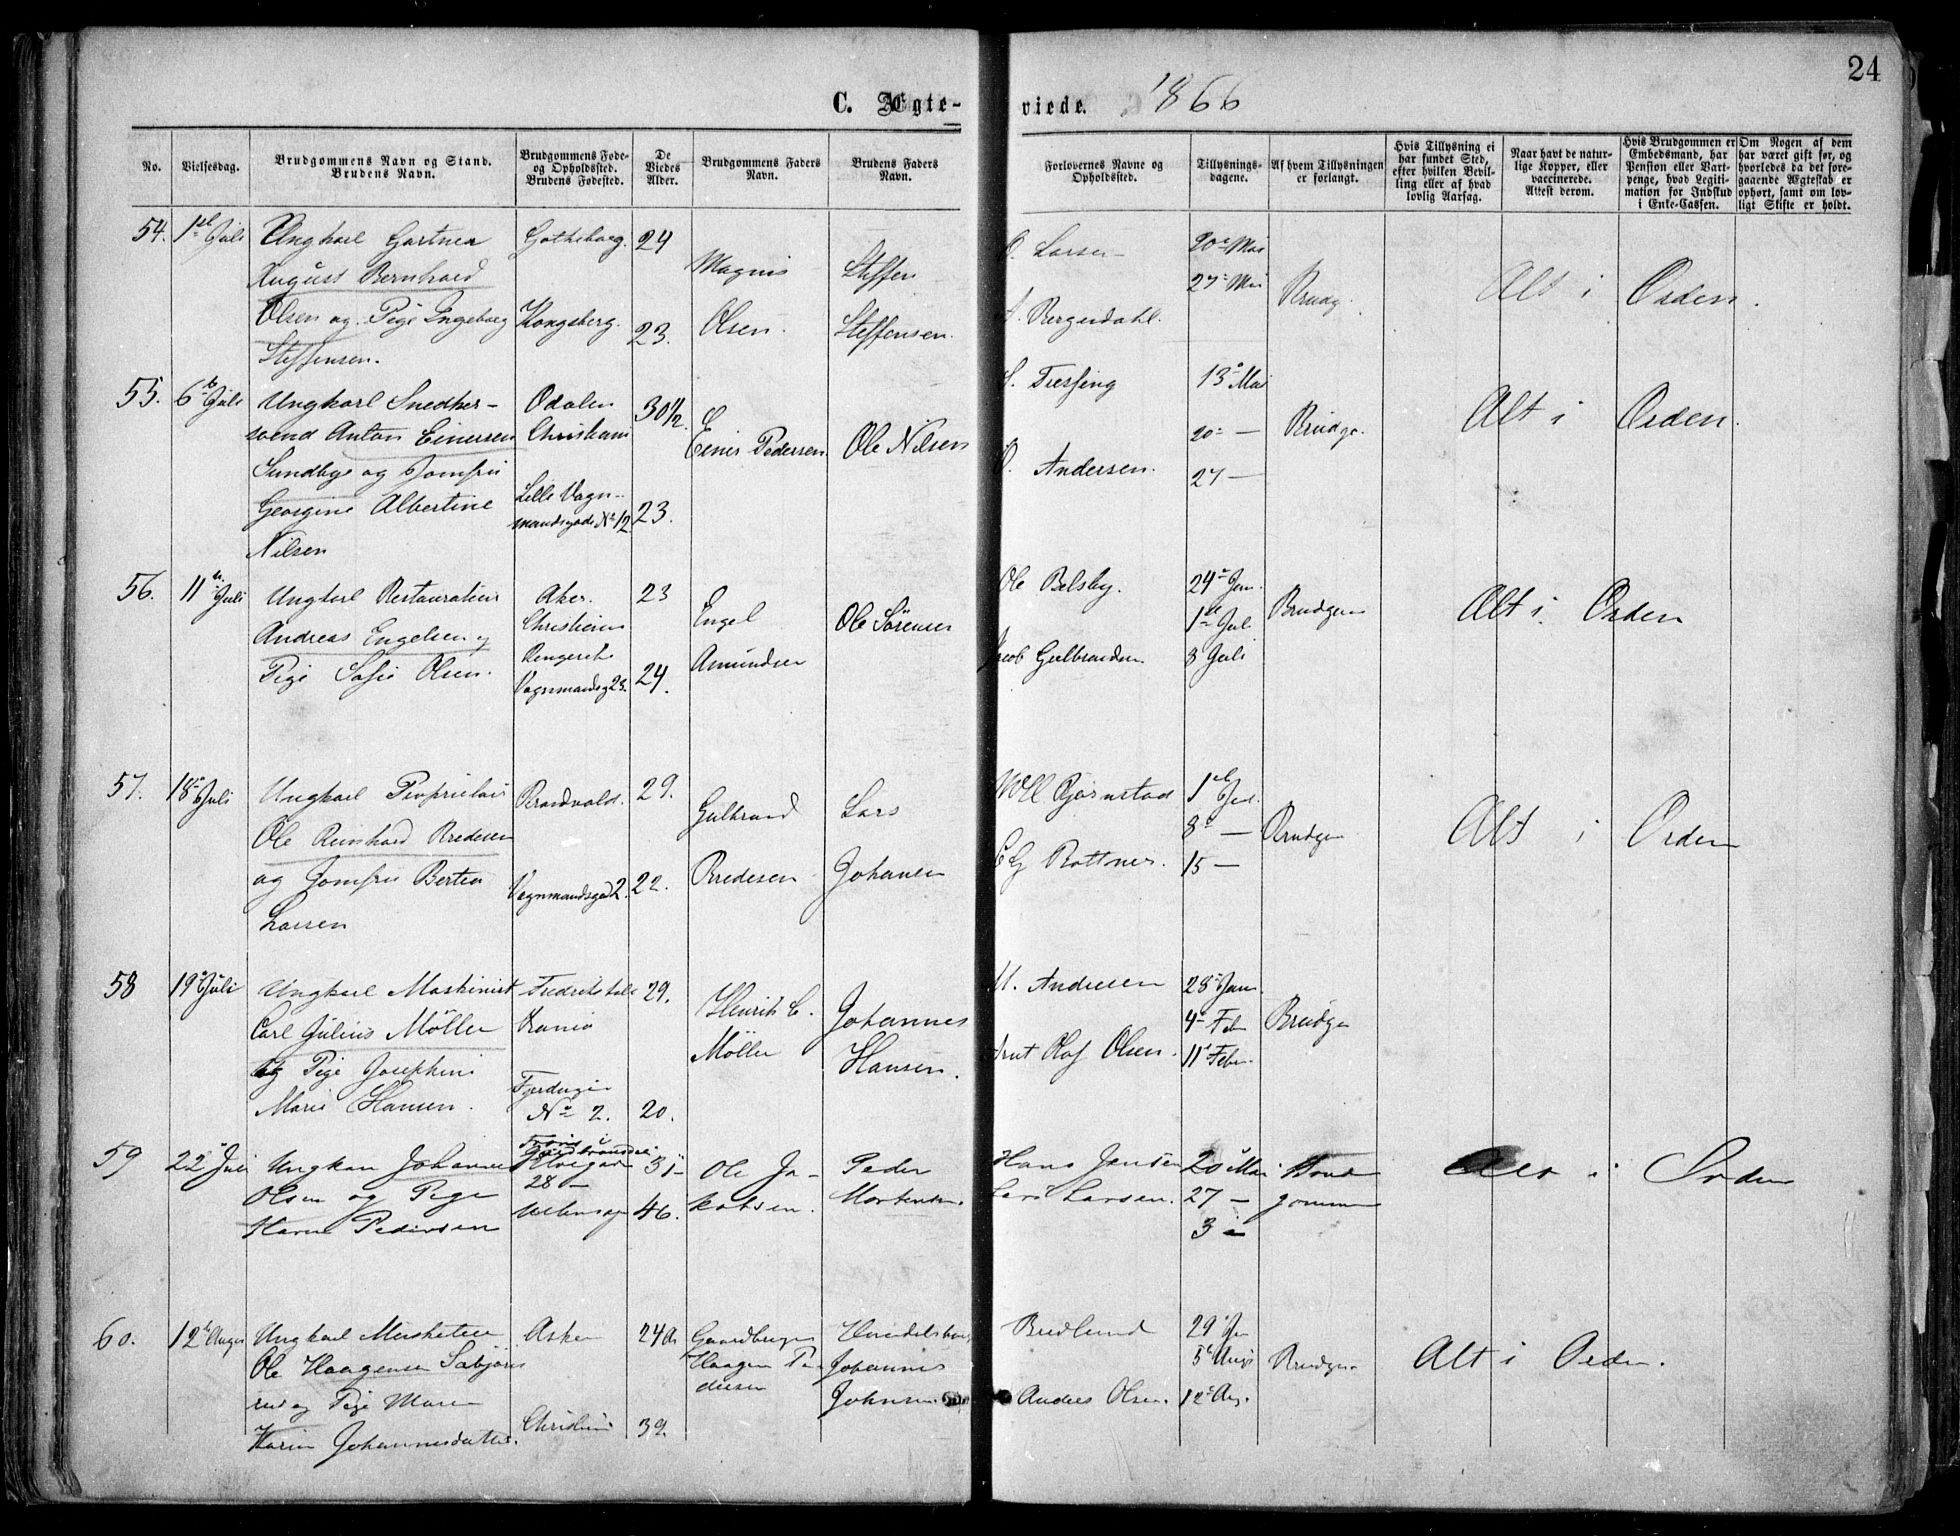 24
C. Ægte-
viede.
1866
No.
Vielsesdag.
Brudgommens Navn og Stand.
Brudens Navn.
Brudgommens Føde-
og Opholdssted.
Brudens Fødested.
De
Viedes
Alder.
Brudgommens Faders
Navn.
Brudens Faders
Navn.
Forlovernes Navne og
Opholdssted.
Tillysnings-
dagene.
Af hvem Tillysningen
er forlangt.
Hvis Tillysning ei
har fundet Sted,
efter hvilken Bevil-
ling eller af hvad
lovlig Aarsag.
Naar havt de natur-
lige Kopper, eller
vaccinerede.
Attest derom.
Hvis Brudgommen er
Embedsmand, har
Pension eller Vart-
penge, hvad Legiti-
mation for Indskud
i Enke-Cassen.
Om Nogen af dem
har været gift før, og
hvorledes da det fore-
gaaende Ægteskab er
ophørt, samt om lov-
ligt Skifte er holdt.
54.
1ste Juli
Ungkarl Gartner
August Bernhard
Olsen og Pige Ingeborg
Steffensen.
Gotheborg.
Kongsberg.
24
23.
Magnus
Olsen.
Steffen
Steffensen.
O. Larsen
Bergerdahl.
20de Mai
27de Mai
Brudg.
Alt i Orden.
55.
6te Juli
Ungkarl Snedker-
svend Anton Einersen
Sundbye og Jomfru
Georgine Albertine
Nilsen
Odalen
Christiania
Lille Vogn-
mandsgade No 12
30 1/2.
23.
Einer Pedersen.
Ole Nilsen
Andersen.
13de Mai
20de —
27 —
Brudg.
Alt i Orden.
56.
11te Juli
Ungkarl Restauratør
Andreas Engelsen og
Pige Sofie Olsen.
Aker.
Christiania
Vognmandsg 23.
23
24.
Engel
Amundsen
Ole Sørensen
Ole Belsby.
Jacob Gulbrandsen.
24de Jun.
1ste Jul.
8 Juli
Brudgom
Alt i Orden
57.
18de Juli
Ungkarl Proprietær
Ole Reinhard Bredesen
og Jomfru Bertea
Larsen
Brandvold.
Vognmandsgad 2.
29.
22.
Gulbrand
Bredesen
Lars
Johansen
Bjørnstad
1ste Jul.
8de —
15 —
Brudgom
Alt i Orden
58
19de Juli
Ungkarl Maskinist
Carl Julius Møller
og Pige Josephine
Marie Hansen.
Fredrikshald
No 2.
29.
20.
Henrik C.
Møller
Johannes
Hansen.
M. Andresen
Olaf Olsen.
28de Jan.
4de Feb
11te Feb.
Brudgom
59
22de Juli
Ungkarl Johannes
Olsen og Pige
Karen Pedersen
28
46.
Ole Ja-
kobsen.
Peder
Mortensen
Hans Jensen
Lars Larsen.
20de Mai
27 —
3 —
Brud
gommen
Alt i Orden
60.
12te August
Ungkarl Musketeer
Ole Haagensen Sæbjørns
rud og Pige Maren
Karin Johannesdatter.
Asker
Christiania
24 A
39.
Gaardbruger
Haagen Pe
dersen
Handelskarl
Johannes
Johnsen
Budlund
Andres Olsen.
29de Ju
5te Augs
12te Aug.
Brudgom
Alt i Orden.